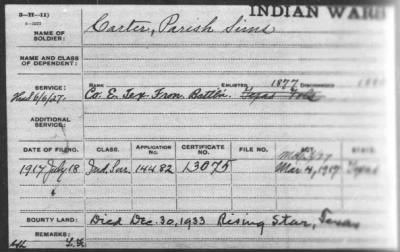 3-H-11)
INDIAN WARS
NAME OF SOLDIER: Carter, Parish Sims
NAME AND CLASS OF DEPENDENT:
SERVICE: RANK ENLISTED 1877 DISCHARGED
Co. E. Tex. Fron. Battln. Texas Vols
ADDITIONAL SERVICE:
DATE OF FILING. CLASS. APPLICATION No. CERTIFICATE NO. FILE NO. ACT. STATE.
1917 July 18 Ind. Sur. 14482 13075 Mar 4, 1917 Texas
BOUNTY LAND: Died Dec. 30, 1933 Rising Star, Texas
REMARKS: